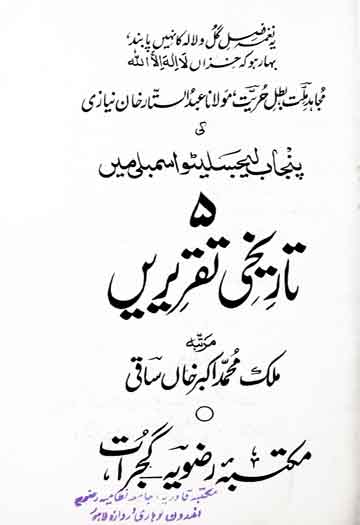 یہ نغمہ فصلِ گل و لالہ کا نہیں پابند،
بہار ہو کہ خزاں لَا اِلٰہَ اِلَّا اللہ
مجاہدِ ملت، بطلِ حریت، مولانا عبدالستار خان نیازی
کی
پنجاب لیجسلیٹو اسمبلی میں
۵
تاریخی تقریریں
مرتبہ
ملک محمد اکبر خاں ساقی
مکتبۂ رضویہ گجرات
مکتبہ قادریہ، جامعہ نظامیہ رضویہ
اندرون لوہاری دروازہ لاہور